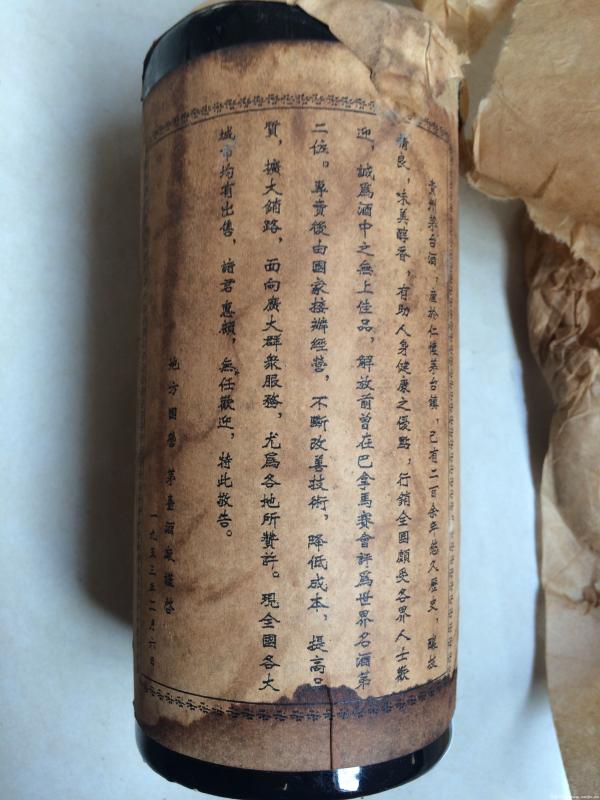 貴州茅台酒，產於仁懷茅台鎮，已有二百余年悠久歷史，釀技
精良，味美醇香，有助人身健康之優點，行銷全國頗受各界人士歡
迎，誠爲酒中之無上佳品，解放前曾在巴拿馬賽會評爲世界名酒第
二位。專賣後由國家接辦經營，不斷改善技術，降低成本，提高品
質，擴大銷路，面向廣大群衆服務，尤爲各地所贊許。現全國各大
城市均有出售，諸君惠顧，無任歡迎，特此敬告。
地方国營茅臺酒廠謹啓
一九五三年二月六日